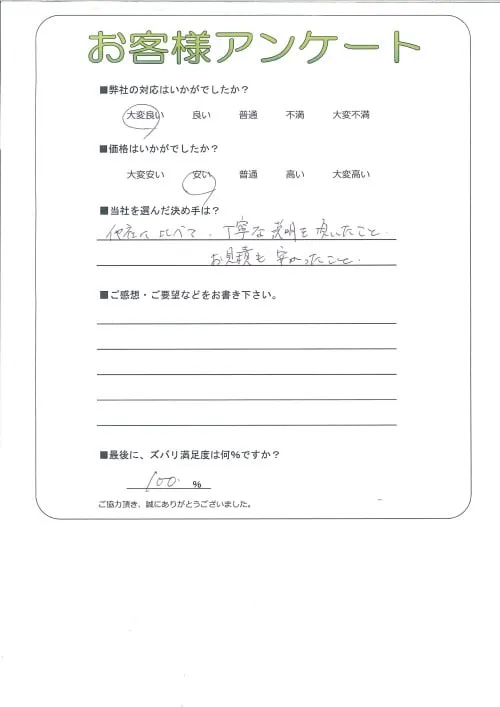 お客様アンケート
■弊社の対応はいかがでしたか？
大変良い 良い 普通 不満 大変不満
■価格はいかがでしたか？
大変安い 安い 普通 高い 大変高い
■当社を選んだ決め手は？
他社に比べて、丁寧な説明を頂いたこと．
お見積も安かったこと．
■ご感想・ご要望などをお書き下さい。
■最後に、ズバリ満足度は何％ですか？
100 %
ご協力頂き、誠にありがとうございました。